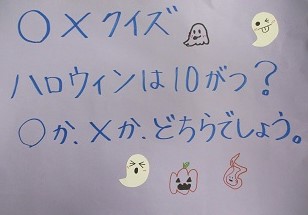 ○×クイズ
ハロウィンは10がつ?
○か、×か、どちらでしょう。